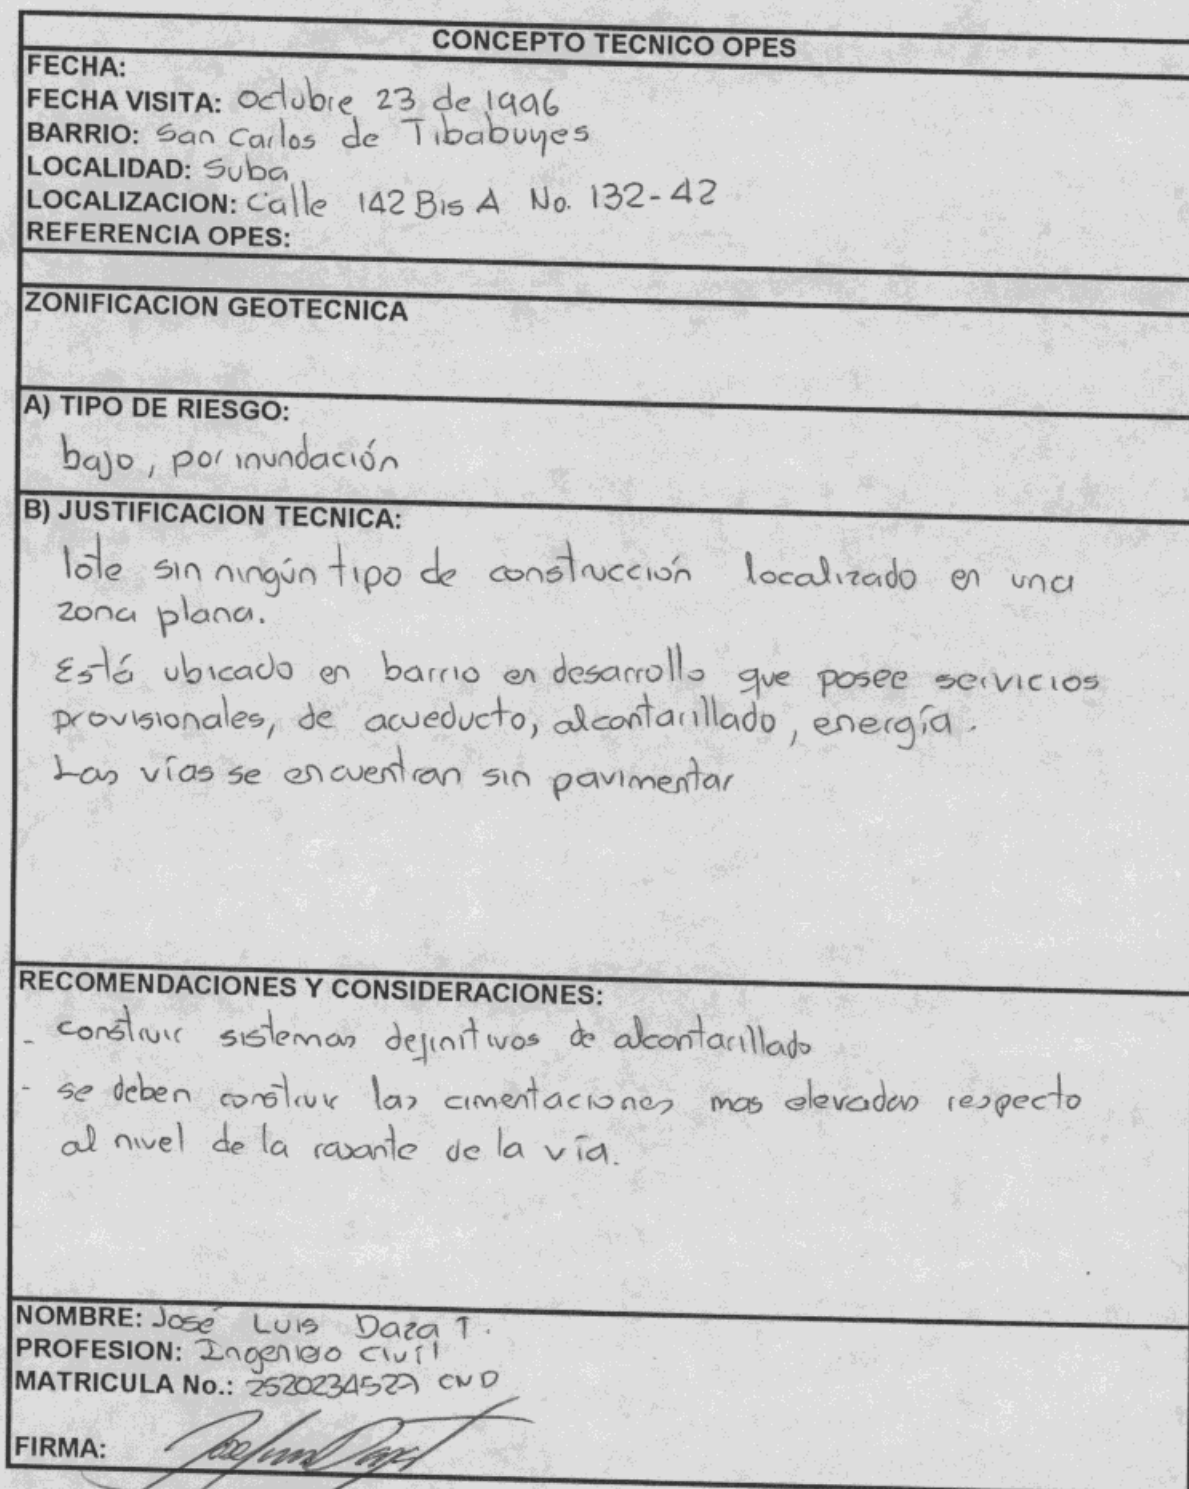 CONCEPTO TECNICO OPES
FECHA:
FECHA VISITA: Octubre 23 de 1996
BARRIO: San Carlos de Tibabuyes
LOCALIDAD: Suba
LOCALIZACION: Calle 142 Bis A No. 132-42
REFERENCIA OPES:
ZONIFICACION GEOTECNICA
A) TIPO DE RIESGO:
bajo, por inundación
B) JUSTIFICACION TECNICA:
lote sin ningún tipo de construcción localizado en una
zona plana.
Está ubicado en barrio en desarrollo que posee servicios
provisionales, de acueducto, alcantarillado, energía.
Las vías se encuentran sin pavimentar
RECOMENDACIONES Y CONSIDERACIONES:
- construir sistemas definitivos de alcantarillado
- se deben construir las cimentaciones mas elevadas respecto
al nivel de la rasante de la vía.
NOMBRE: José Luis Daza T.
PROFESION: Ingeniero civil
MATRICULA No.: 2520234527 CND
FIRMA: